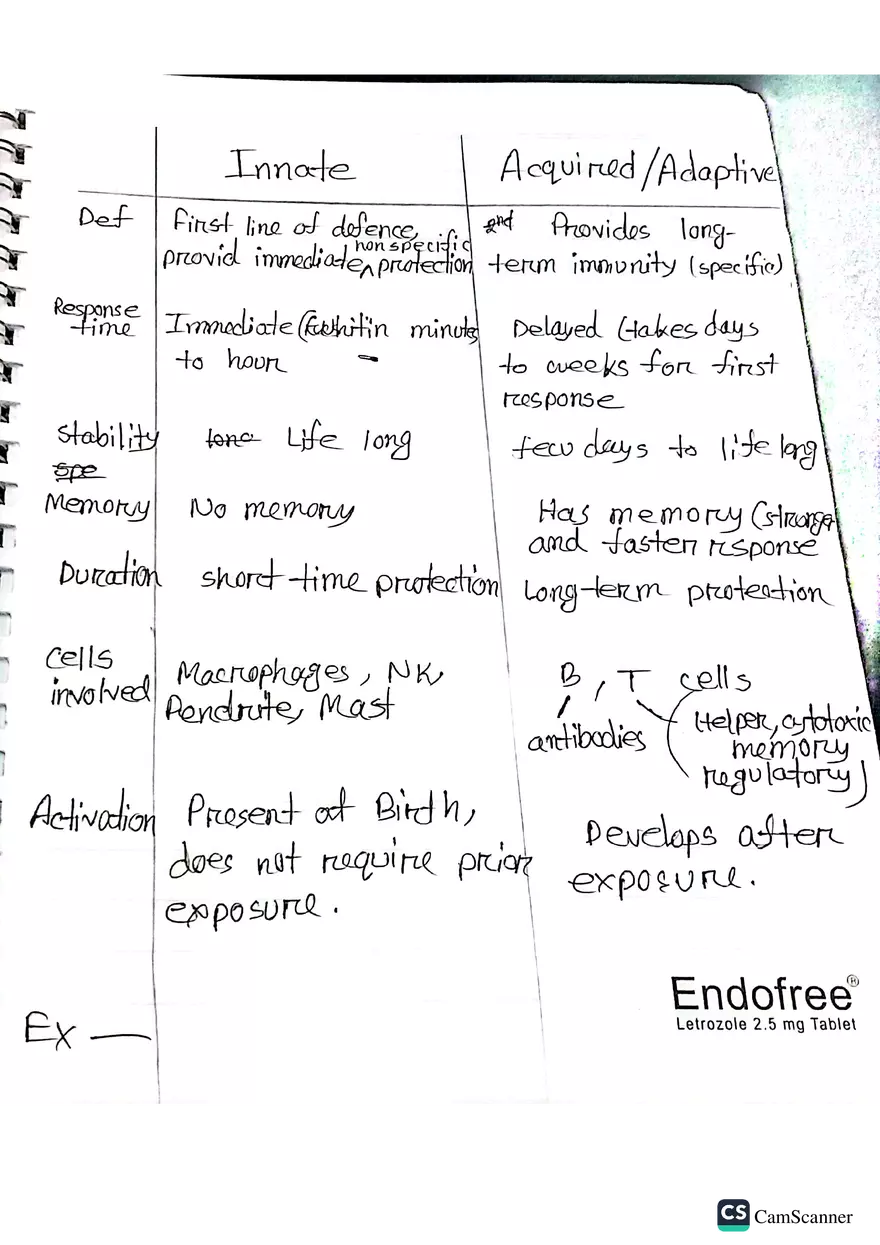 Innate Acquired/Adaptive
Def First line of defence, 2nd Provides long-
provid immediate, nonspecific protection term immunity (specific)
Response
time Immediate (within minute Delayed (takes days
to hour to weeks for first
response
Stability Life long few days to life long
Memory No memory Has memory (stronger
and faster rsponse
Duration short-time protection Long-term protection
Cells
involved Macrophages, NK, B, T cells
Dendrite, Mast
antibodies Helper, cytotoxic
memory
regulatory)
Activation Present at Birth, Develops after
does not require prior exposure.
exposure.
Ex —
Endofree®
Letrozole 2.5 mg Tablet
CS CamScanner